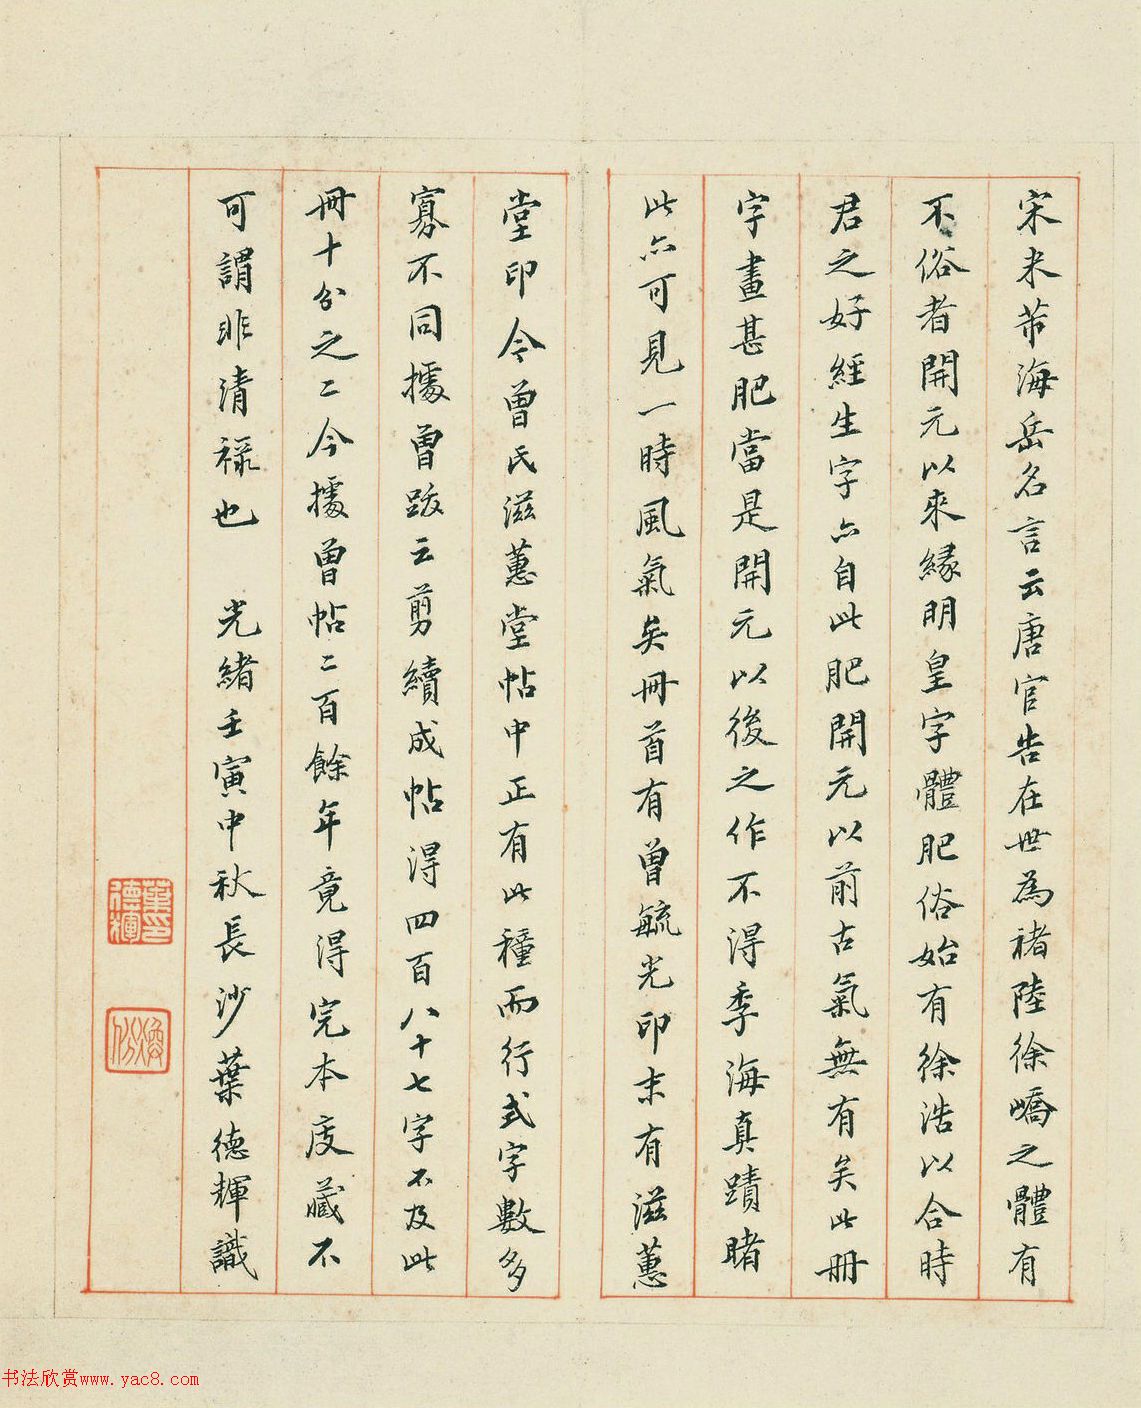 宋米芾海岳名言云唐官告在世為褚陸徐嶠之體有
不俗者開元以來緣明皇字體肥俗始有徐浩以合時
君之好經生字亦自此肥開元以前古氣無有矣此冊
字畫甚肥當是開元以後之作不得季海真蹟睹
此亦可見一時風氣矣冊首有曾毓光印末有滋蕙
堂印令曾氏滋蕙堂帖中正有此種而行式字數多
寡不同據曾跋云剪續成帖得四百八十七字不及此
冊十分之二今據曾帖二百餘年竟得完本庋藏不
可謂非清祿也 光緒壬寅中秋長沙葉德輝識
葉印德輝
煥份
书法欣赏www.yac8.com